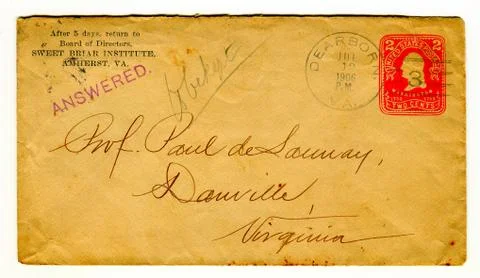 After 5 days, return to
Board of Directors,
SWEET BRIAR INSTITUTE,
AMHERST, VA.
ANSWERED.
DEARBORN
JUL
1906
P.M.
VA.
3
2 UNITED STATES POSTAGE 2
WASHINGTON
TWO CENTS
Prof. Paul de Launay,
Danville,
Virginia